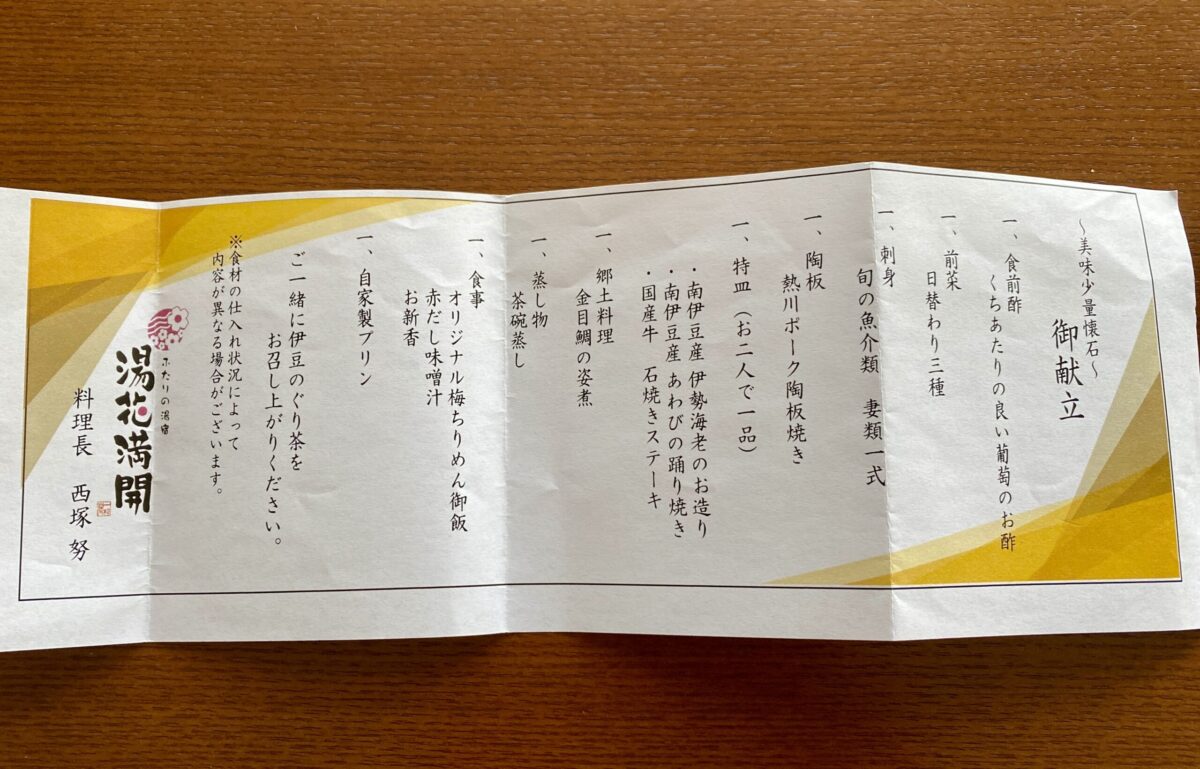 ～美味少量懐石～
御献立
一、食前酢
くちあたりの良い葡萄のお酢
一、前菜
日替わり三種
一、刺身
旬の魚介類　妻類一式
一、陶板
熱川ポーク陶板焼き
一、特皿（お二人で一品）
・南伊豆産 伊勢海老のお造り
・南伊豆産 あわびの踊り焼き
・国産牛　石焼きステーキ
一、郷土料理
金目鯛の姿煮
一、蒸し物
茶碗蒸し
一、食事
オリジナル梅ちりめん御飯
赤だし味噌汁
お新香
一、自家製プリン
ご一緒に伊豆のぐり茶を
お召し上がりください。
※食材の仕入れ状況によって
内容が異なる場合がございます。
ふたりの湯宿
湯花満開
料理長　西塚 努